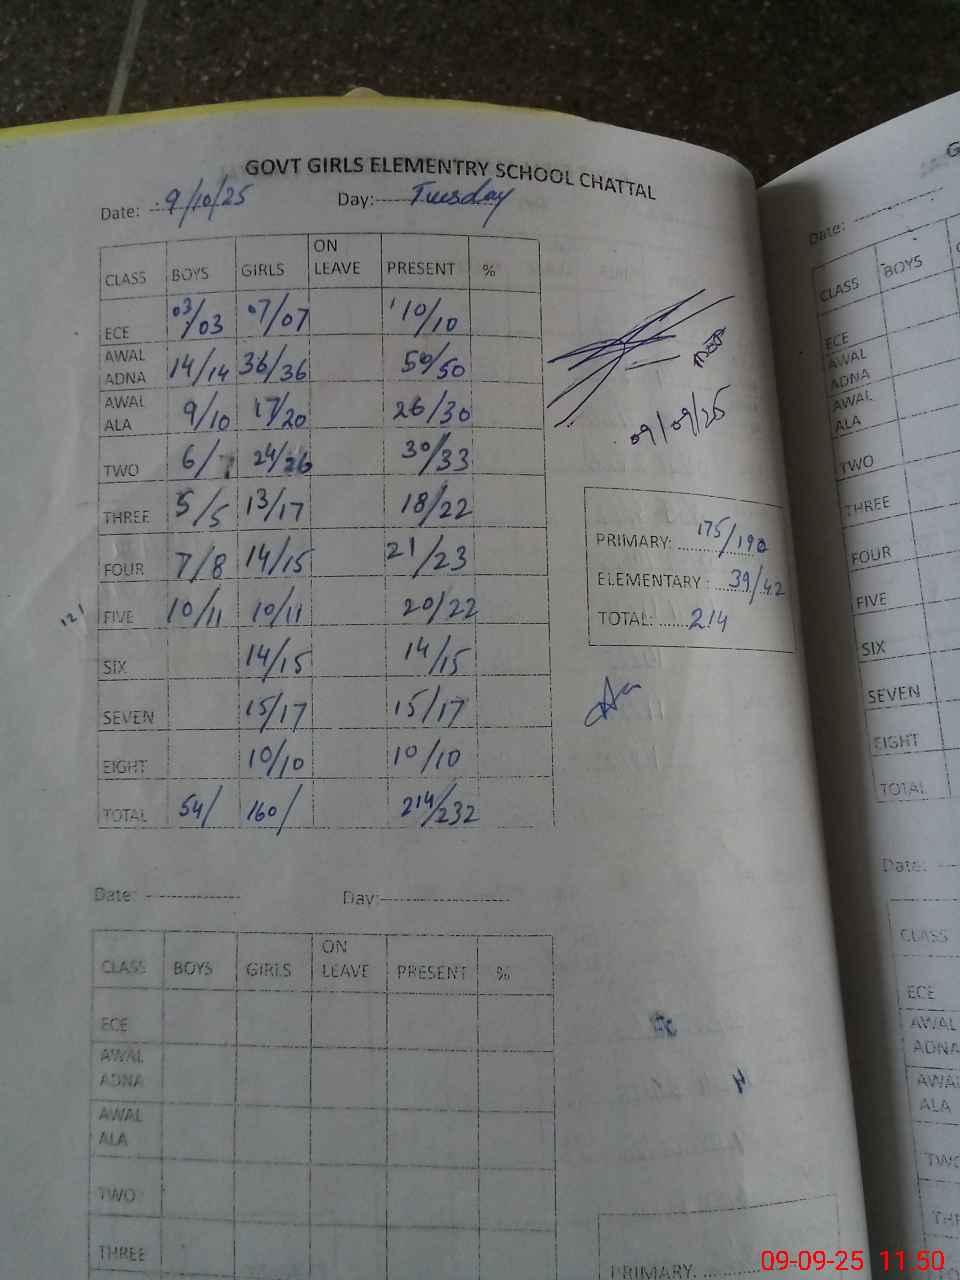 GOVT GIRLS ELEMENTRY SCHOOL CHATTAL
Date: 9/10/25 Day: Tuesday
CLASS BOYS GIRLS ON LEAVE PRESENT %
ECE 03/03 07/07 10/10
AWAL ADNA 14/14 36/36 50/50
AWAL ALA 9/10 17/20 26/30
TWO 6/7 24/26 30/33
THREE 5/5 13/17 18/22
FOUR 7/8 14/15 21/23
FIVE 10/11 10/11 20/22
SIX 14/15 14/15
SEVEN 15/17 15/17
EIGHT 10/10 10/10
TOTAL 54/ 160/ 214/232
121
09/09/25
PRIMARY: 175/190
ELEMENTARY: 39/42
TOTAL: 214
Date: Day:
CLASS BOYS GIRLS ON LEAVE PRESENT %
ECE
AWAL ADNA
AWAL ALA
TWO
THREE
PRIMARY.
G
Date:
CLASS BOYS
ECE
AWAL ADNA
AWAL ALA
TWO
THREE
FOUR
FIVE
SIX
SEVEN
EIGHT
TOTAL
Date:
CLASS
ECE
AWAL
ADNA
AWA
ALA
TWO
09-09-25 11.50